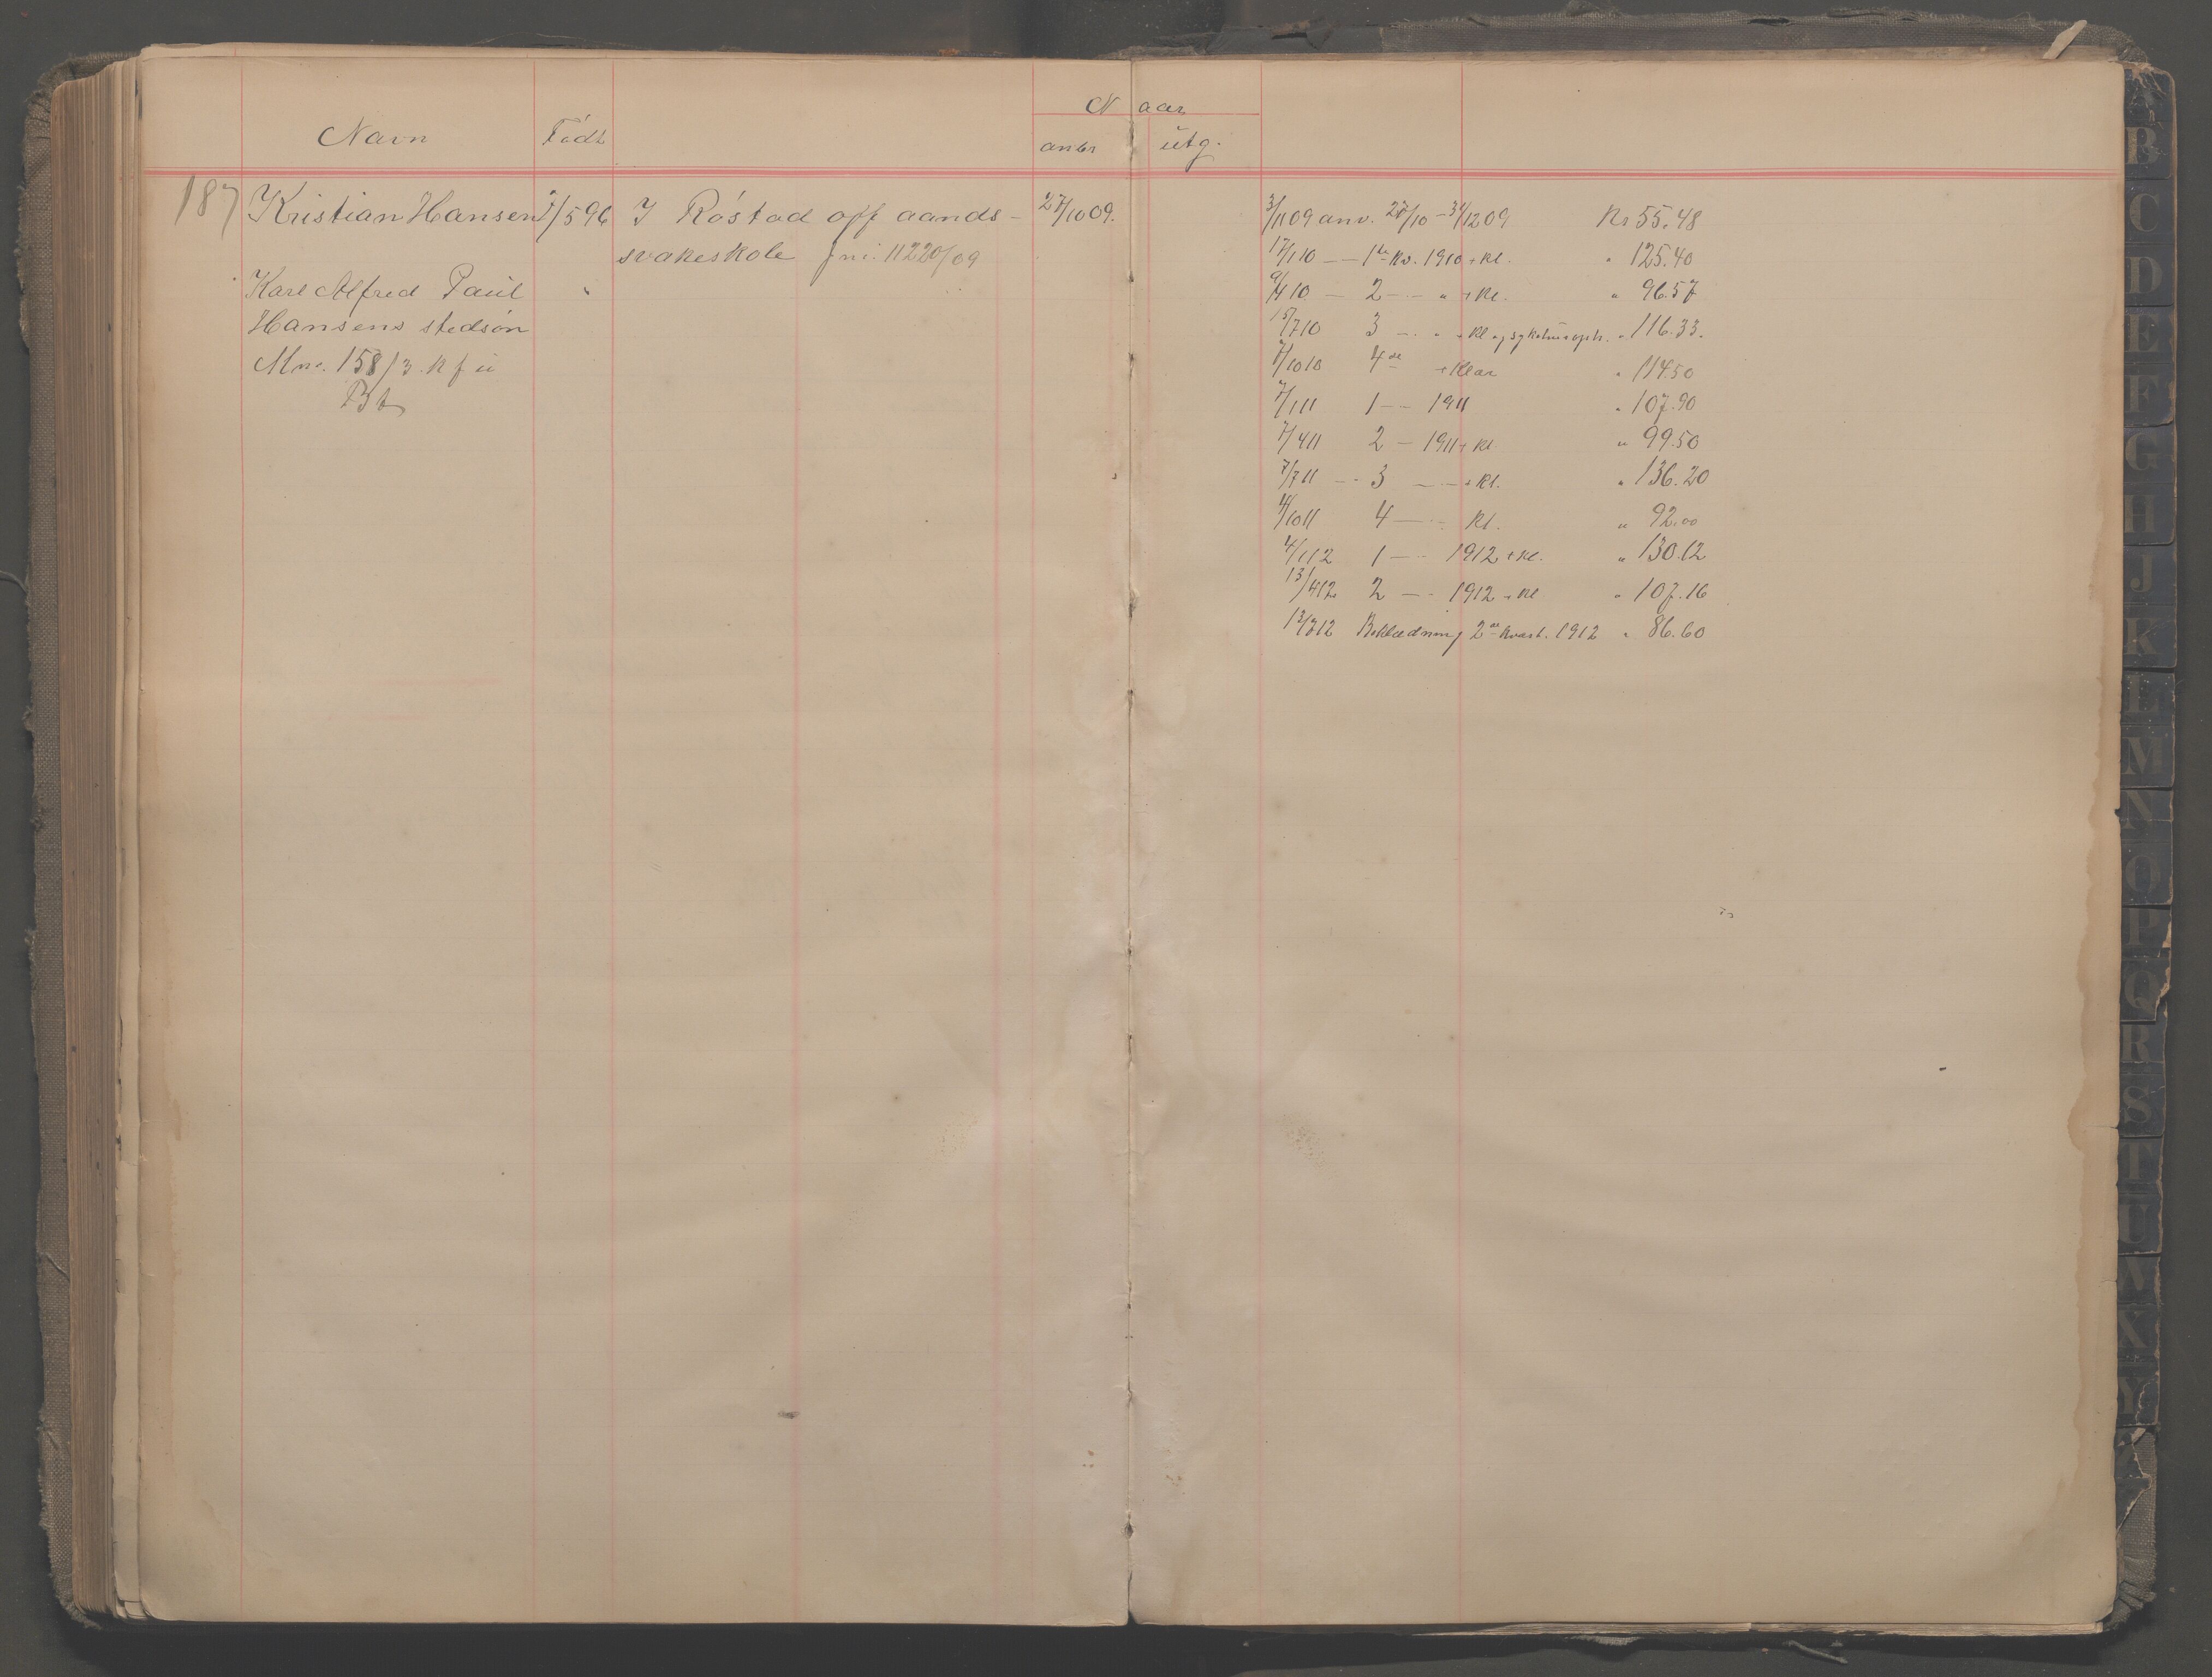 Navn Født Naar
anbr utg.
187 Kristian Hansen 7/5 96 I Røstad off aands- 27/10 09.
svakeskole jnr. 11220/09
Karl Alfred Paul
Hansens stedsøn
Mnr. 158/3. K f u
Bt
3/11 09 anv. 27/10 - 31/12 09 Kr 55.48
17/1 10 — — 1ste Kv. 1910 + Kl. " 125.40
9/4 10 — 2 — - " + Kl. " 96.57
15/7 10 3 — . " + Kl og sykehusoph. " 116.33.
7/10 10 4de + Klær " 114.50
7/1 11 1 — - 1911 " 107.90
7/4 11 2 — 1911 + Kl " 99.50
7/7 11 — - 3 — - + Kl. " 136.20
4/10 11 4 — - Kl. " 92.00
4/1 12 1 — - 1912 + Kl. " 130.12
13/4 12 2 — - 1912 + Kl " 107.16
13/7 12 Beklædning 2det kvart. 1912 " 86.60
A
B
C
D
E
F
G
H
J
K
L
M
N
O
P
Q
R
S
T
U
V
X
Y